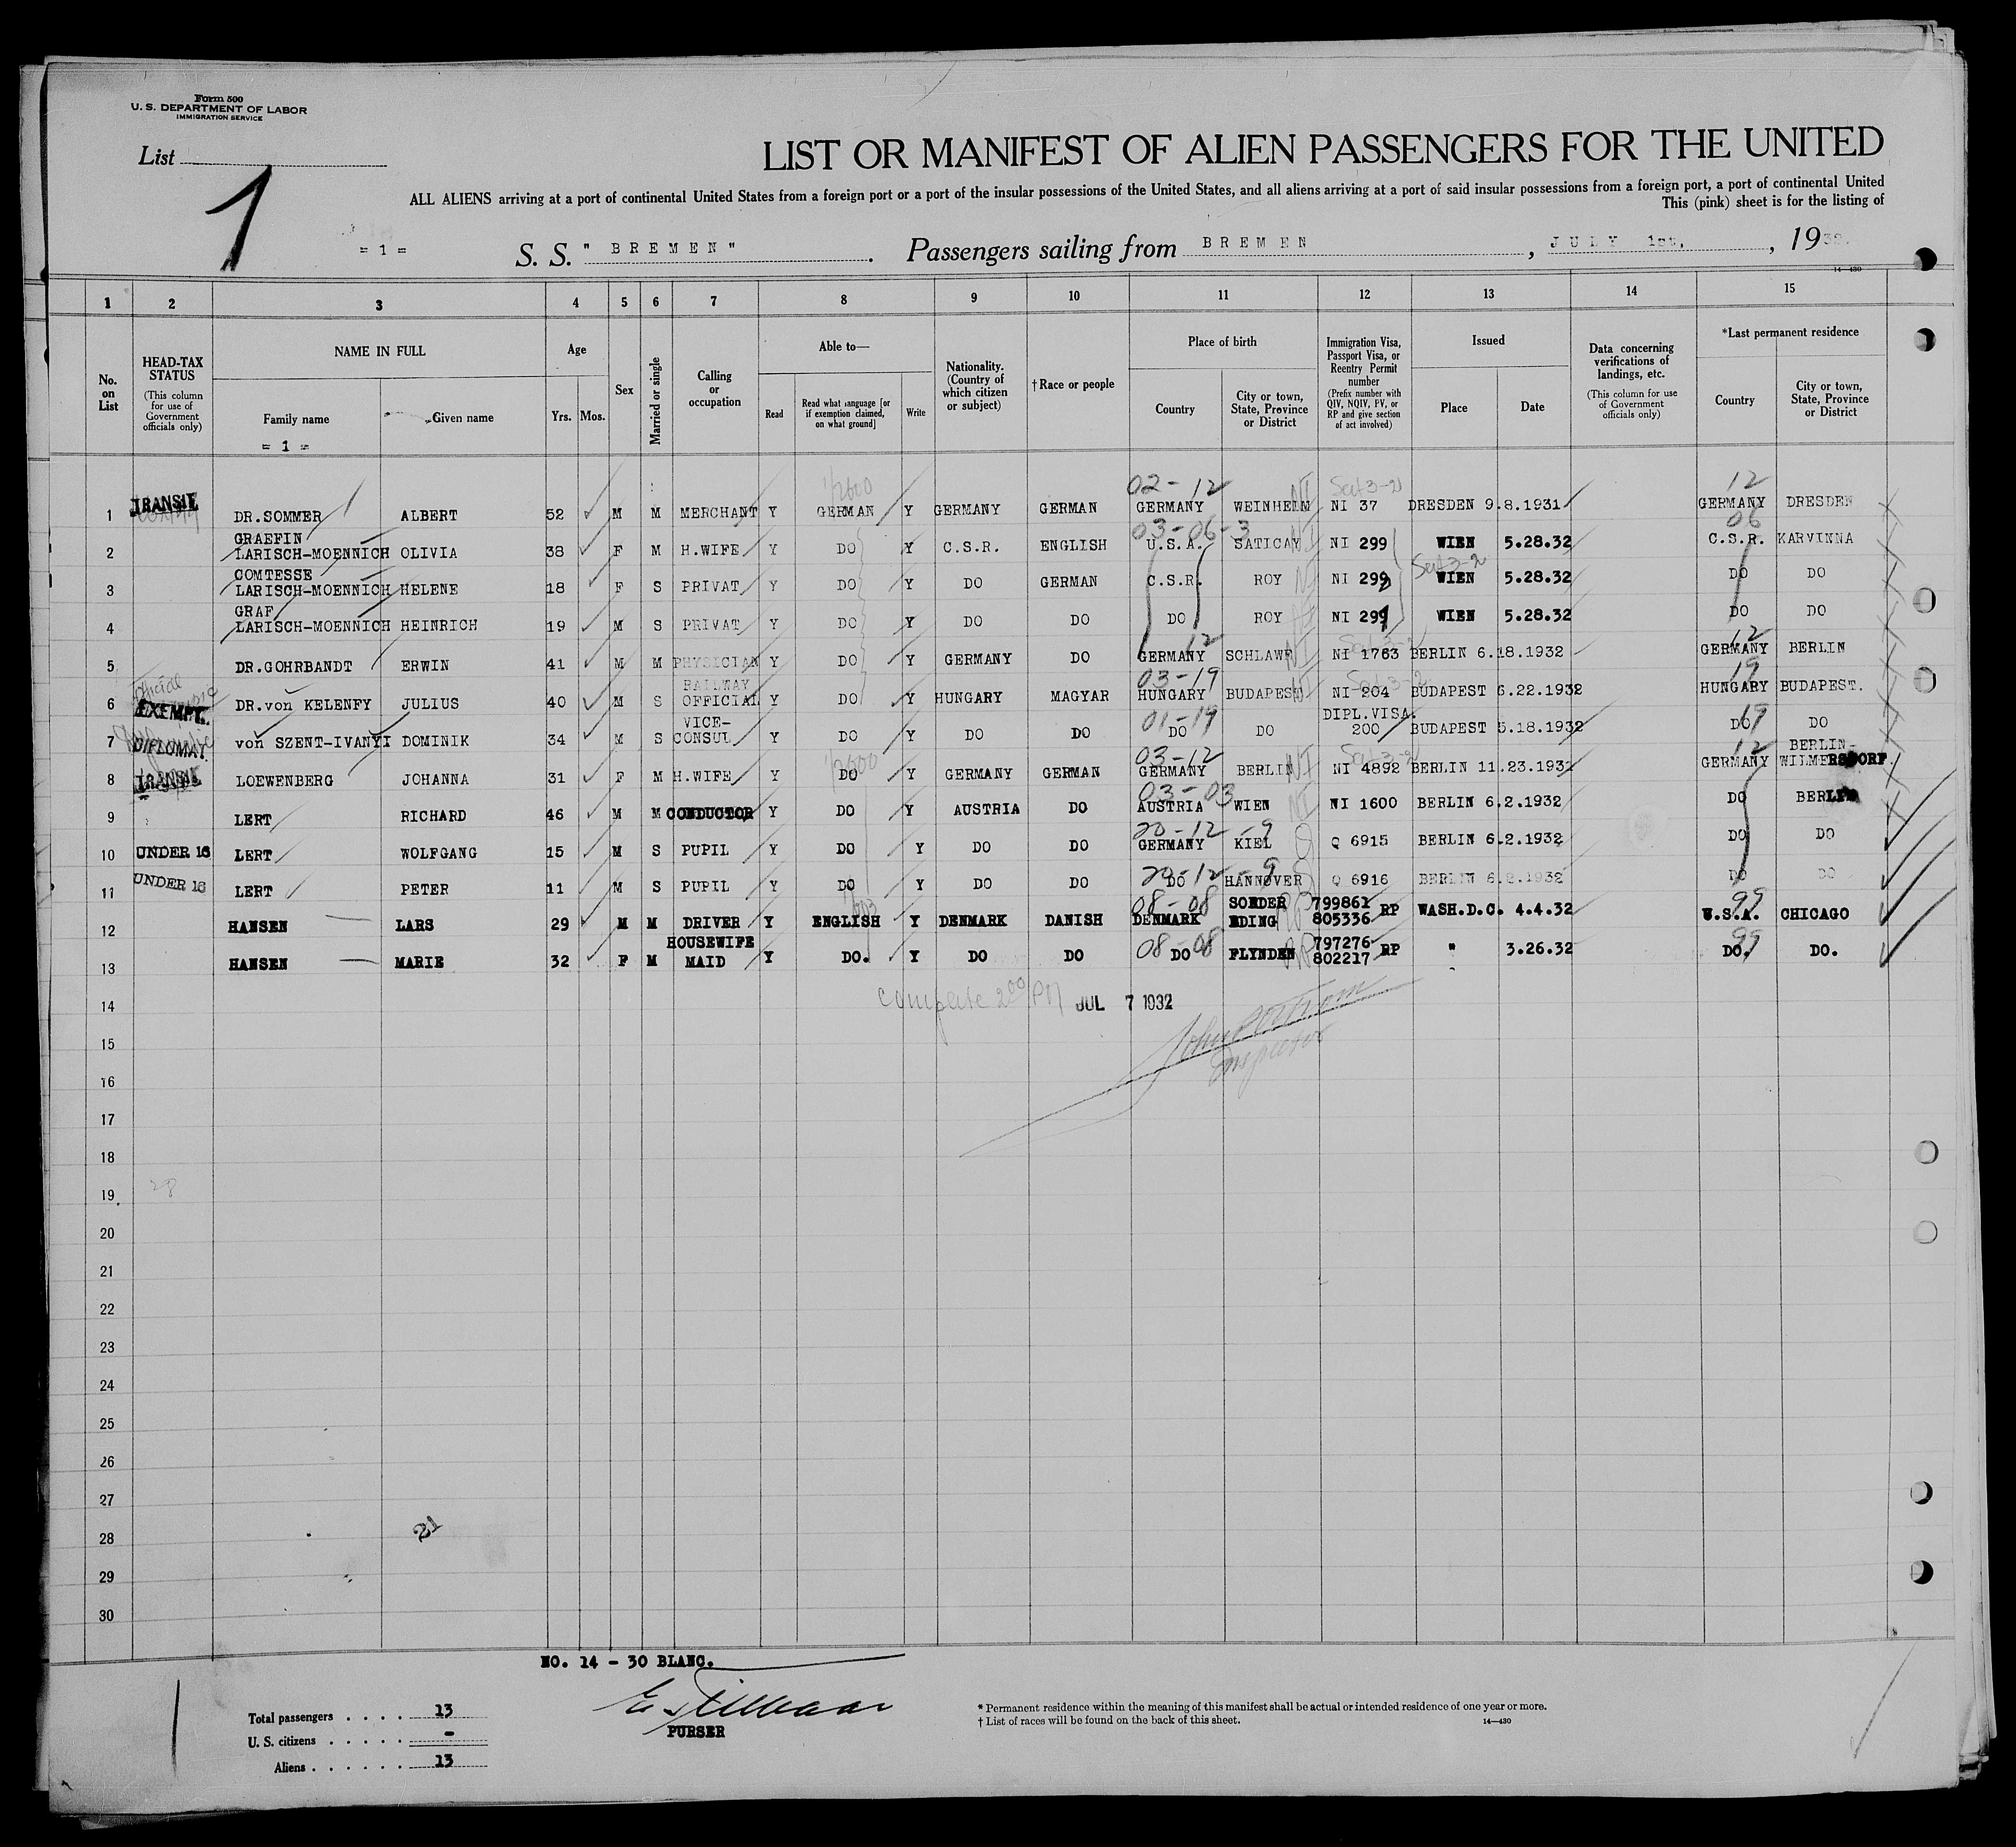 Form 500
U. S. DEPARTMENT OF LABOR
IMMIGRATION SERVICE
List
1
LIST OR MANIFEST OF ALIEN PASSENGERS FOR THE UNITED
ALL ALIENS arriving at a port of continental United States from a foreign port or a port of the insular possessions of the United States, and all aliens arriving at a port of said insular possessions from a foreign port, a port of continental United
This (pink) sheet is for the listing of
= 1 = S. S. " BREMEN " . Passengers sailing from BREMEN , JULY 1st, , 19
14—430
1 2 3 4 5 6 7 8 9 10 11 12 13 14 15
No. on List
HEAD-TAX STATUS (This column for use of Government officials only)
NAME IN FULL
Family name
Given name
= 1 =
Age
Yrs. Mos.
Sex
Married or single
Calling or occupation
Able to—
Read
Read what language [or if exemption claimed, on what ground]
Write
Nationality. (Country of which citizen or subject)
† Race or people
Place of birth
Country
City or town, State, Province or District
Immigration Visa, Passport Visa, or Reentry Permit number (Prefix number with QIV, NQIV, PV, or RP and give section of act involved)
Issued
Place
Date
Data concerning verifications of landings, etc. (This column for use of Government officials only)
*Last permanent residence
Country
City or town, State, Province or District
02-12 Sect 3-2 12
1 TRANSIT DR.SOMMER ALBERT 52 M M MERCHANT Y GERMAN Y GERMANY GERMAN GERMANY WEINHEIM NI NI 37 DRESDEN 9.8.1931 GERMANY DRESDEN
03-06-3 06
2 GRAEFIN LARISCH-MOENNICH OLIVIA 38 F M H.WIFE Y DO Y C.S.R. ENGLISH U.S.A. SATICAY NI NI 299 WIEN 5.28.32 C.S.R. KARVINNA
Sect 3-2
3 COMTESSE LARISCH-MOENNICH HELENE 18 F S PRIVAT Y DO Y DO GERMAN C.S.R. ROY NI NI 299 WIEN 5.28.32 DO DO
4 GRAF LARISCH-MOENNICH HEINRICH 19 M S PRIVAT Y DO Y DO DO DO ROY NI 299 WIEN 5.28.32 DO DO
12 Sect 3-2 12
5 DR.GOHRBANDT ERWIN 41 M M PHYSICIAN Y DO Y GERMANY DO GERMANY SCHLAWE NI NI 1763 BERLIN 6.18.1932 GERMANY BERLIN
Official 03-19 Sect 3-2 19
6 EXEMPT. DR.von KELENFY JULIUS 40 M S RAILWAY OFFICIAL Y DO Y HUNGARY MAGYAR HUNGARY BUDAPEST NI NI 204 BUDAPEST 6.22.1932 HUNGARY BUDAPEST.
01-19 19
7 DIPLOMAT. von SZENT-IVANYI DOMINIK 34 M S VICE-CONSUL Y DO Y DO DO DO DO DIPL.VISA. 200 BUDAPEST 5.18.1932 DO DO
03-12 Sect 3-2 12
8 TRANSIT LOEWENBERG JOHANNA 31 F M H.WIFE Y DO Y GERMANY GERMAN GERMANY BERLIN NI NI 4892 BERLIN 11.23.1931 GERMANY BERLIN-WILMERSDORF.
03-03
9 LERT RICHARD 46 M M CONDUCTOR Y DO Y AUSTRIA DO AUSTRIA WIEN NI NI 1600 BERLIN 6.2.1932 DO BERLIN
20-12-9
10 UNDER 16 LERT WOLFGANG 15 M S PUPIL Y DO Y DO DO GERMANY KIEL Q Q 6915 BERLIN 6.2.1932 DO DO
20-12-9
11 UNDER 16 LERT PETER 11 M S PUPIL Y DO Y DO DO DO HANNOVER Q 6916 BERLIN 6.2.1932 DO DO
08-08 99
12 HANSEN LARS 29 M M DRIVER Y ENGLISH Y DENMARK DANISH DENMARK SONDER EDING RP 799861 805336 RP WASH.D.C. 4.4.32 U.S.A. CHICAGO
08-08 99
13 HANSEN MARIE 32 F M HOUSEWIFE MAID Y DO. Y DO DO DO FLYNDEN RP 797276 802217 RP " 3.26.32 DO. DO.
14 complete 2 00 PM JUL 7 1932
15
Inspector
16
17
18
19 28
20
21
22
23
24
25
26
27
28 21
29
30
NO. 14 - 30 BLANC.
PURSER
Total passengers . . . . 13
U. S. citizens . . . . . -
Aliens . . . . . . 13
* Permanent residence within the meaning of this manifest shall be actual or intended residence of one year or more.
† List of races will be found on the back of this sheet.
14—430